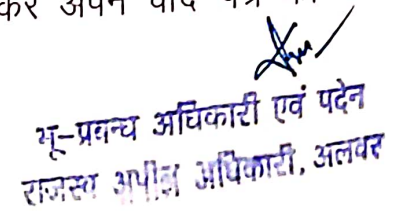 कर अपने वाद पत्र
भू-प्रबन्ध अधिकारी एवं पदेन
राजस्व अपील अधिकारी, अलवर